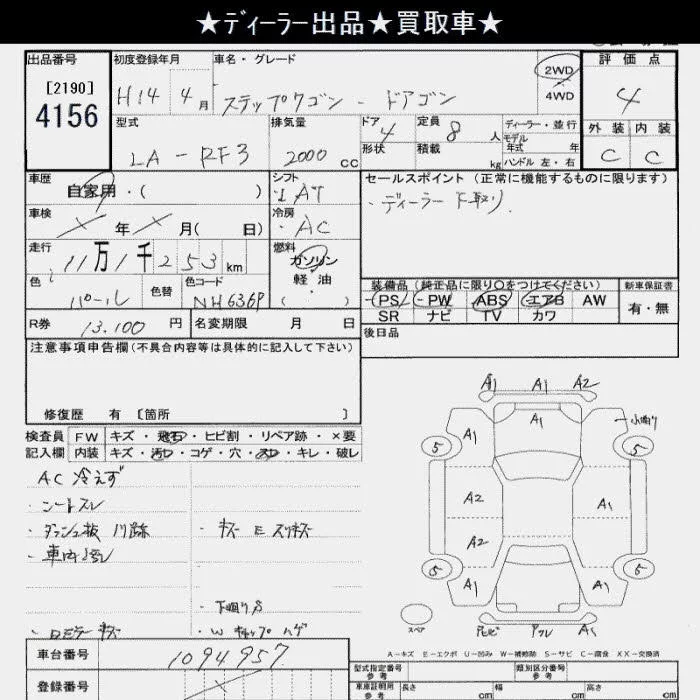 ★ﾃﾞｨｰﾗｰ出品★買取車★
出品番号
[2190]
4156
初度登録年月
H14 4月
車名・グレード
ステップワゴン - ドアゴン
2WD
4WD
評価点
4
外装 内装
C C
型式
LA-RF3
排気量
2000 cc
ドア 4
形状
定員 8 人
積載 kg
ディーラー・並行
モデル年式 年
ハンドル 左・右
車歴
自家用・( )
シフト
AT
車検
× 年 × 月( 日)
冷房
AC
セールスポイント (正常に機能するものに限ります)
・ディーラー下取り.
走行
11万1千253km
燃料
ガソリン
軽油
( )
色
パール
色替
色コード
NH636P
装備品 (純正品に限り〇をつけてください)
PS・PW・ABS・エアB AW
SR ナビ TV カワ
新車保証書
有・無
R券 13.100円
名変期限 月 日
後日品
注意事項申告欄(不具合内容等は具体的に記入して下さい)
修復歴 有 [箇所 ]
検査員
記入欄
FW キズ・飛石・ヒビ割・リペア跡・×要
内装 キズ・汚れ・コゲ・穴・スレ・キレ・破レ
AC 冷えず
・シートスレ
・ダッシュ板 爪跡
・車内汚レ
・キズ E スリキズ
・下廻りS
・ドミラー キズ
・W キャップ ハゲ
A1 A1 A2
A1 A1 小曲り
5 5
A2 A1
A2
5 5
A1 A1 A1
スペア
A1
車台番号
1094957
登録番号
A-キズ E-エクボ U-凹み W-補修跡 S-サビ C-腐食 XX-交換済
型式指定番号
参考
類別区分番号
参考
車庫証明用
参考
長さ cm
幅 cm
高さ cm